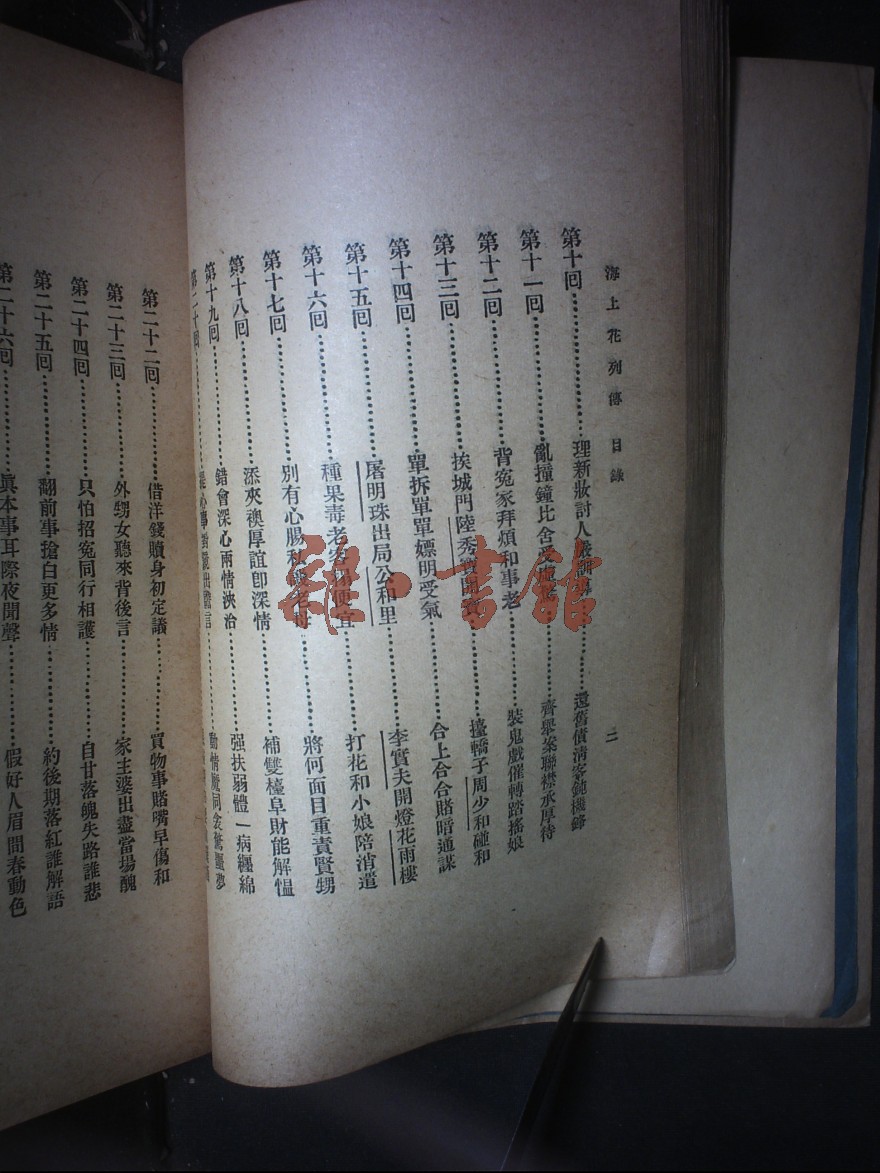 海上花列傳 目錄
二
第十回 理新妝討人嚴 還舊債清客鈍機鋒
第十一回 亂撞鐘比舍受 齊舉案聯襟承厚待
第十二回 背冤家拜煩和事老 裝鬼戲催轉踏搖娘
第十三回 挨城門陸秀寶開 擡轎子周少和碰和
第十四回 單拆單單嫖明受氣 合上合合賭暗通謀
第十五回 屠明珠出局公和里 李實夫開燈花雨樓
第十六回 種果毒老 便宜 打花和小娘陪消遣
第十七回 別有心腸私 老母 將何面目重責賢甥
第十八回 添夾襖厚誼卽深情 補雙檯阜財能解慍
第十九回 錯會深心兩情浹洽 强扶弱體一病纏綿
第二十回 心事 言 動情魔同衾驚噩夢
第二十二回 借洋錢贖身初定議 買物事賭嘴早傷和
第二十三回 外甥女聽來背後言 家主婆出盡當場醜
第二十四回 只怕招冤同行相護 自甘落魄失路誰悲
第二十五回 翻前事搶白更多情 約後期落紅誰解語
第二十六回 眞本事耳際夜聞聲 假好人眉間春動色
雜·書館